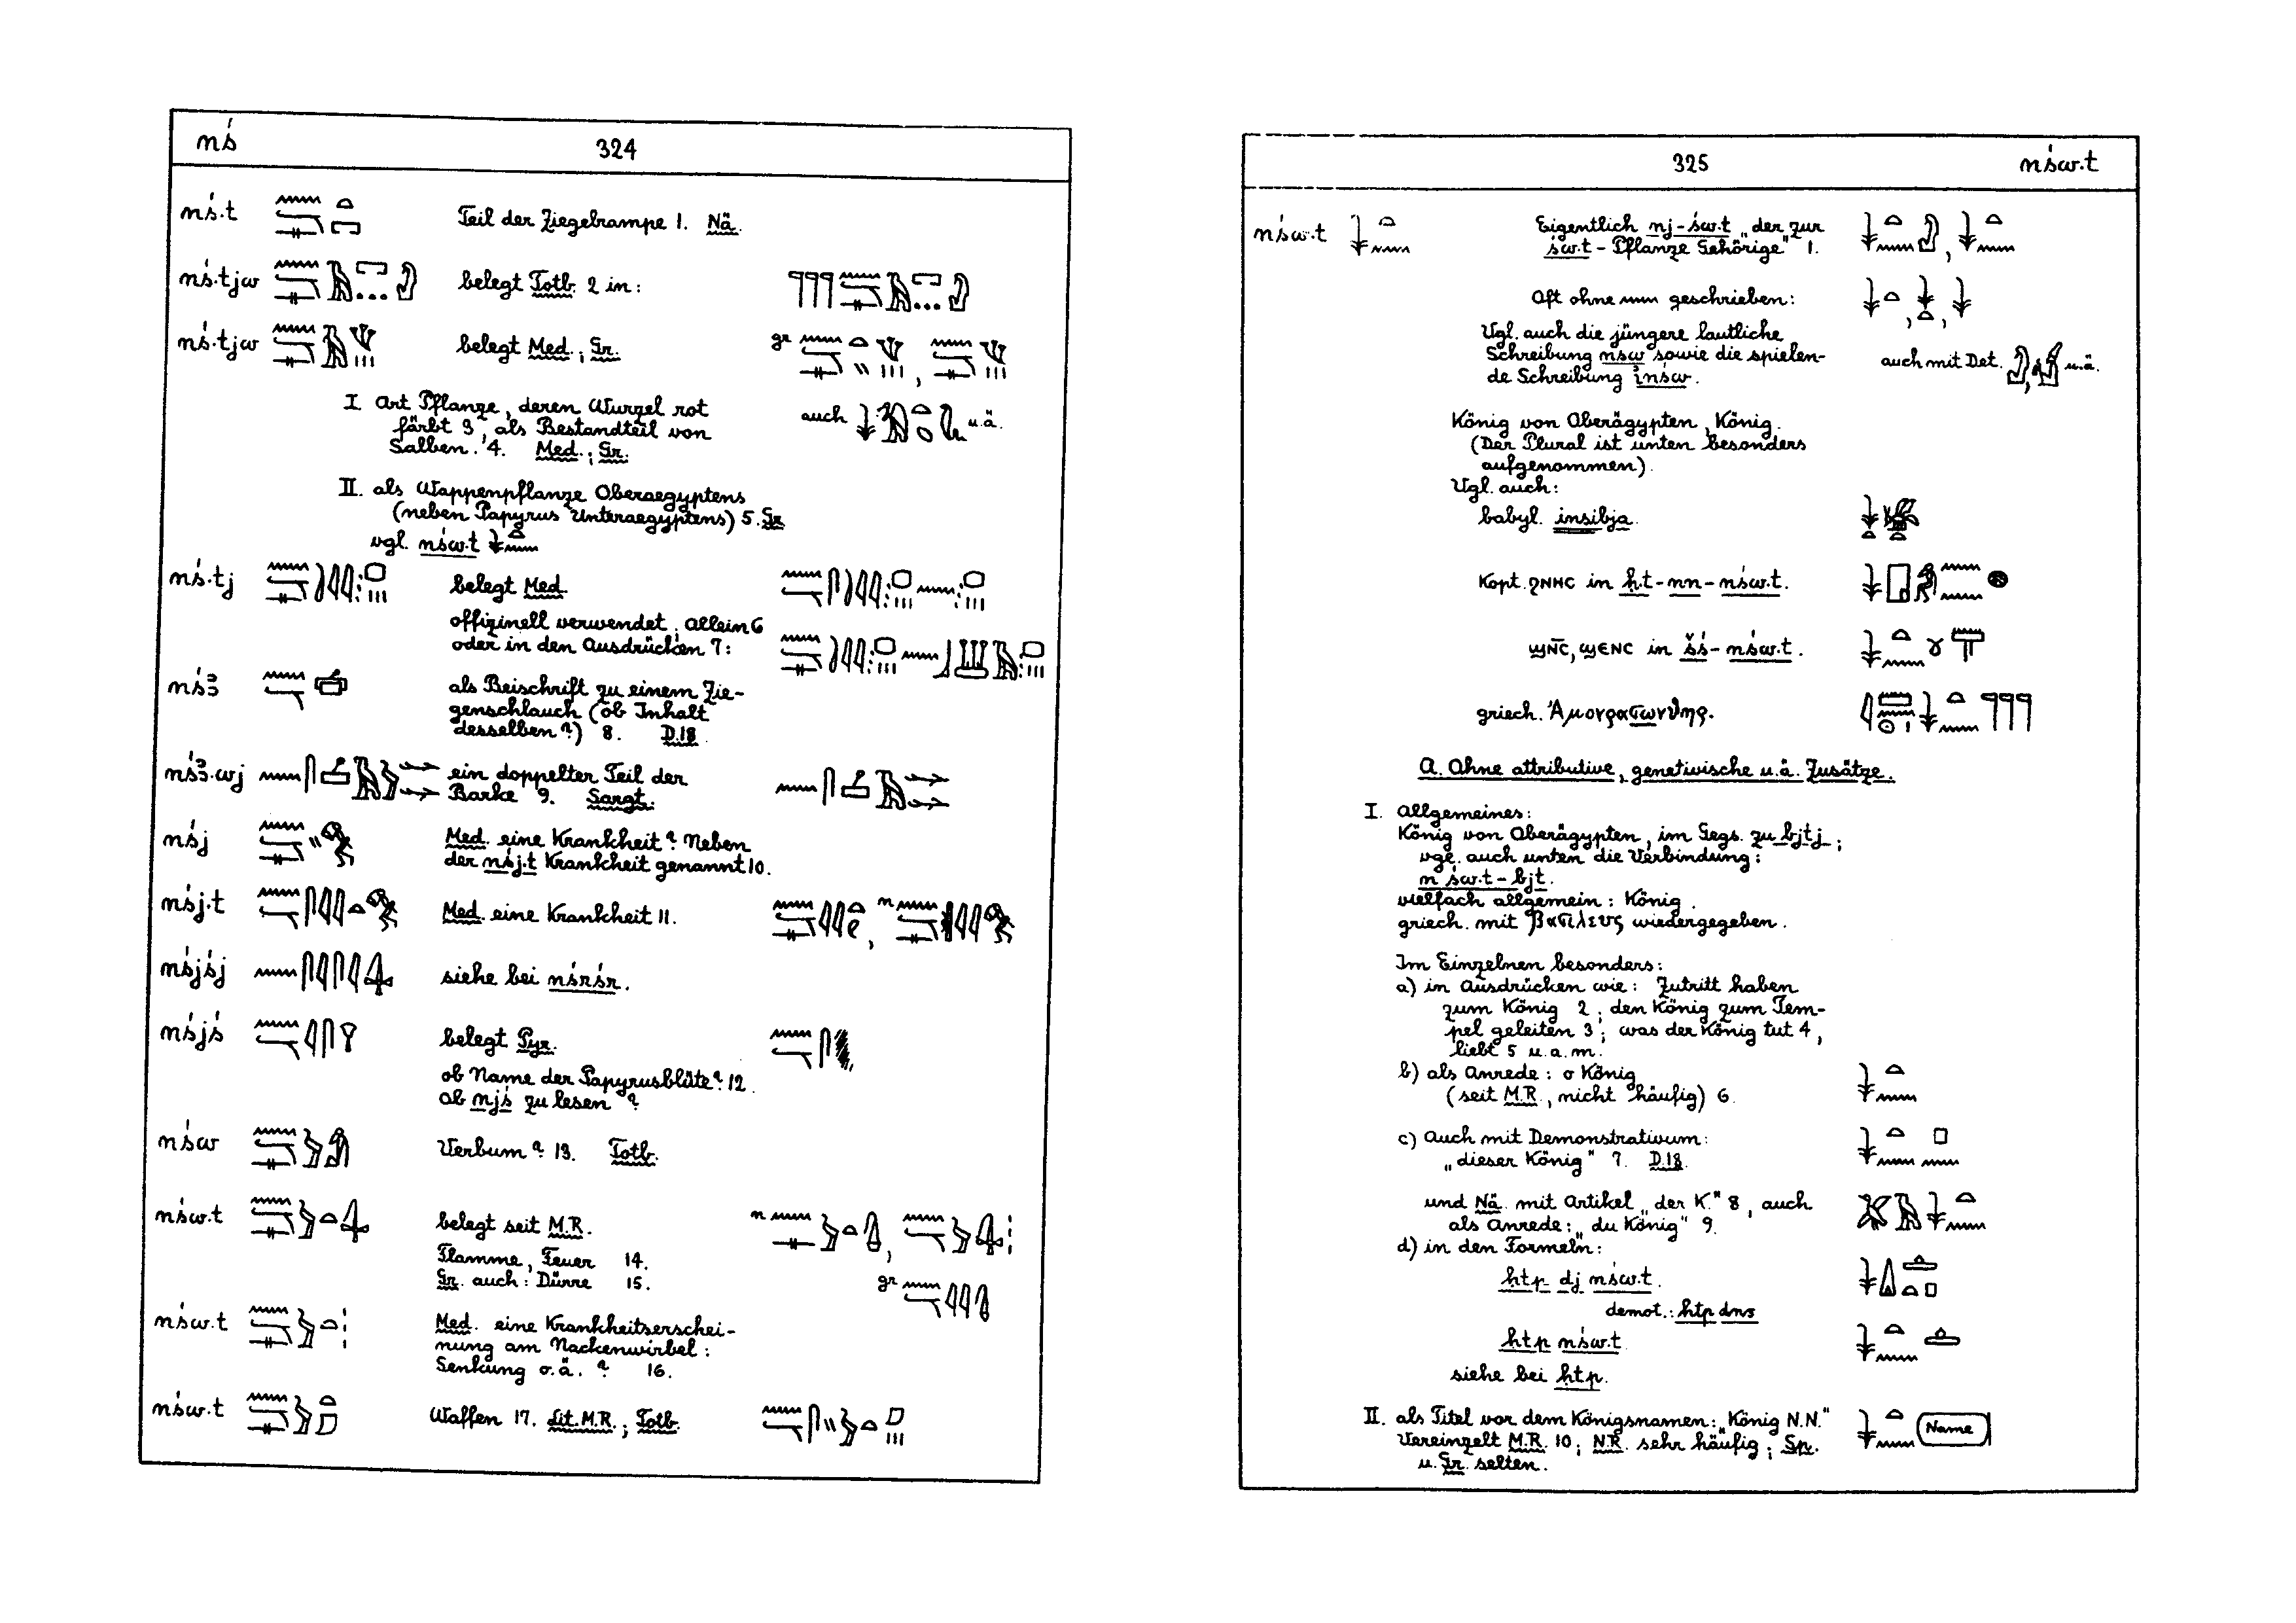 nś
324
nś.t Teil der Ziegelrampe 1. Nä.
nś.tjw belegt Totb. 2 in:
nś.tjw belegt Med.; Gr. gr
I Art Pflanze, deren Wurzel rot auch u.ä.
färbt 3, als Bestandteil von
Salben. 4. Med.; Gr.
II. als Wappenpflanze Oberaegyptens
(neben Papyrus Unteraegyptens) 5. Gr
vgl. nśw.t
nś.tj belegt Med.
offizinell verwendet; allein 6
oder in den Ausdrücken 7:
nśꜣ als Beischrift zu einem Zie-
genschlauch (ob Inhalt
desselben?) 8. D.18.
nśꜣ.wj ein doppelter Teil der
Barke 9. Sargt.
nśj Med. eine Krankheit? Neben
der nśj.t Krankheit genannt 10.
nśj.t Med. eine Krankheit 11. n
nśjśj siehe bei nśrśr.
nśjś belegt Pyr.
ob Name der Papyrusblüte? 12.
ob njś zu lesen?
nśw Verbum? 13. Totb.
nśw.t belegt seit M.R. n
Flamme, Feuer 14.
Gr. auch: Dürre 15. gr
nśw.t Med. eine Krankheitserschei-
nung am Nackenwirbel:
Senkung o.ä.? 16.
nśw.t Waffen 17. Lit. M.R.; Totb.
325
nśw.t
nśw.t Eigentlich nj-św.t „der zur
św.t-Pflanze Gehörige" 1.
Oft ohne geschrieben:
Vgl. auch die jüngere lautliche
Schreibung nsw sowie die spielen-
de Schreibung inśw. auch mit Det. u.ä.
König von Oberägypten, König.
(Der Plural ist unten besonders
aufgenommen).
Vgl. auch:
babyl. insibja.
Kopt. ϩⲛⲏⲥ in ḥ.t-nn-nśw.t.
ϣⲛ̄ⲥ, ϣⲉⲛⲥ in šś-nśw.t.
griech. Ἀμονρασωνθηρ.
A. Ohne attributive, genetivische u.ä. Zusätze.
I. Allgemeines:
König von Oberägypten, im Gegs. zu bjtj;
vgl. auch unten die Verbindung:
nśw.t-bjt.
vielfach allgemein: König.
griech. mit βασιλευς wiedergegeben.
Im Einzelnen besonders:
a) in Ausdrücken wie: Zutritt haben
zum König 2; den König zum Tem-
pel geleiten 3; was der König tut 4,
liebt 5 u.a.m.
b) als Anrede: o König
(seit M.R., nicht häufig) 6.
c) Auch mit Demonstrativum:
„dieser König" 7. D.18.
und Nä. mit Artikel „der K." 8, auch
als Anrede: „du König" 9.
d) in den Formeln:
ḥtp dj nśw.t.
demot.: ḥtp dns
ḥtp nśw.t.
siehe bei ḥtp.
II. als Titel vor dem Königsnamen: „König N.N." Name
Vereinzelt M.R. 10; N.R. sehr häufig; Sp.
u. Gr. selten.